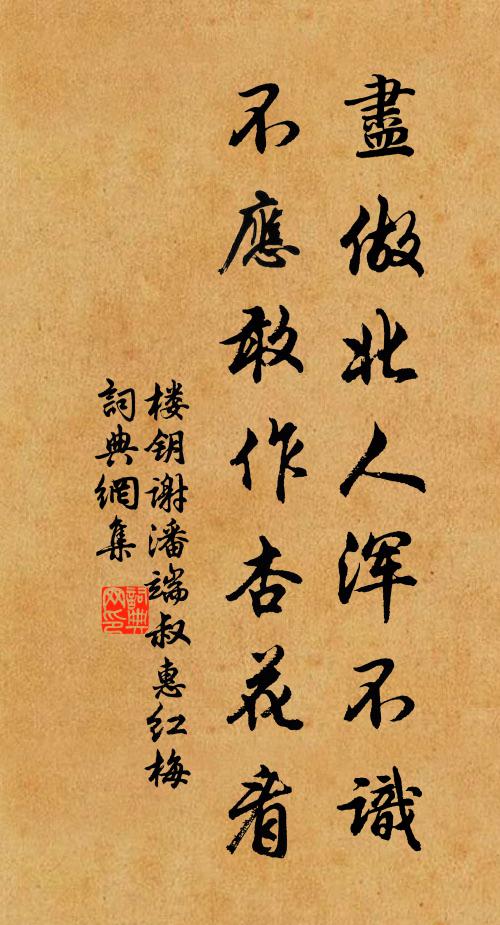 盡做北人浑不識
不應敢作杏花看
楼钥谢潘端叔惠红梅
詞典網集